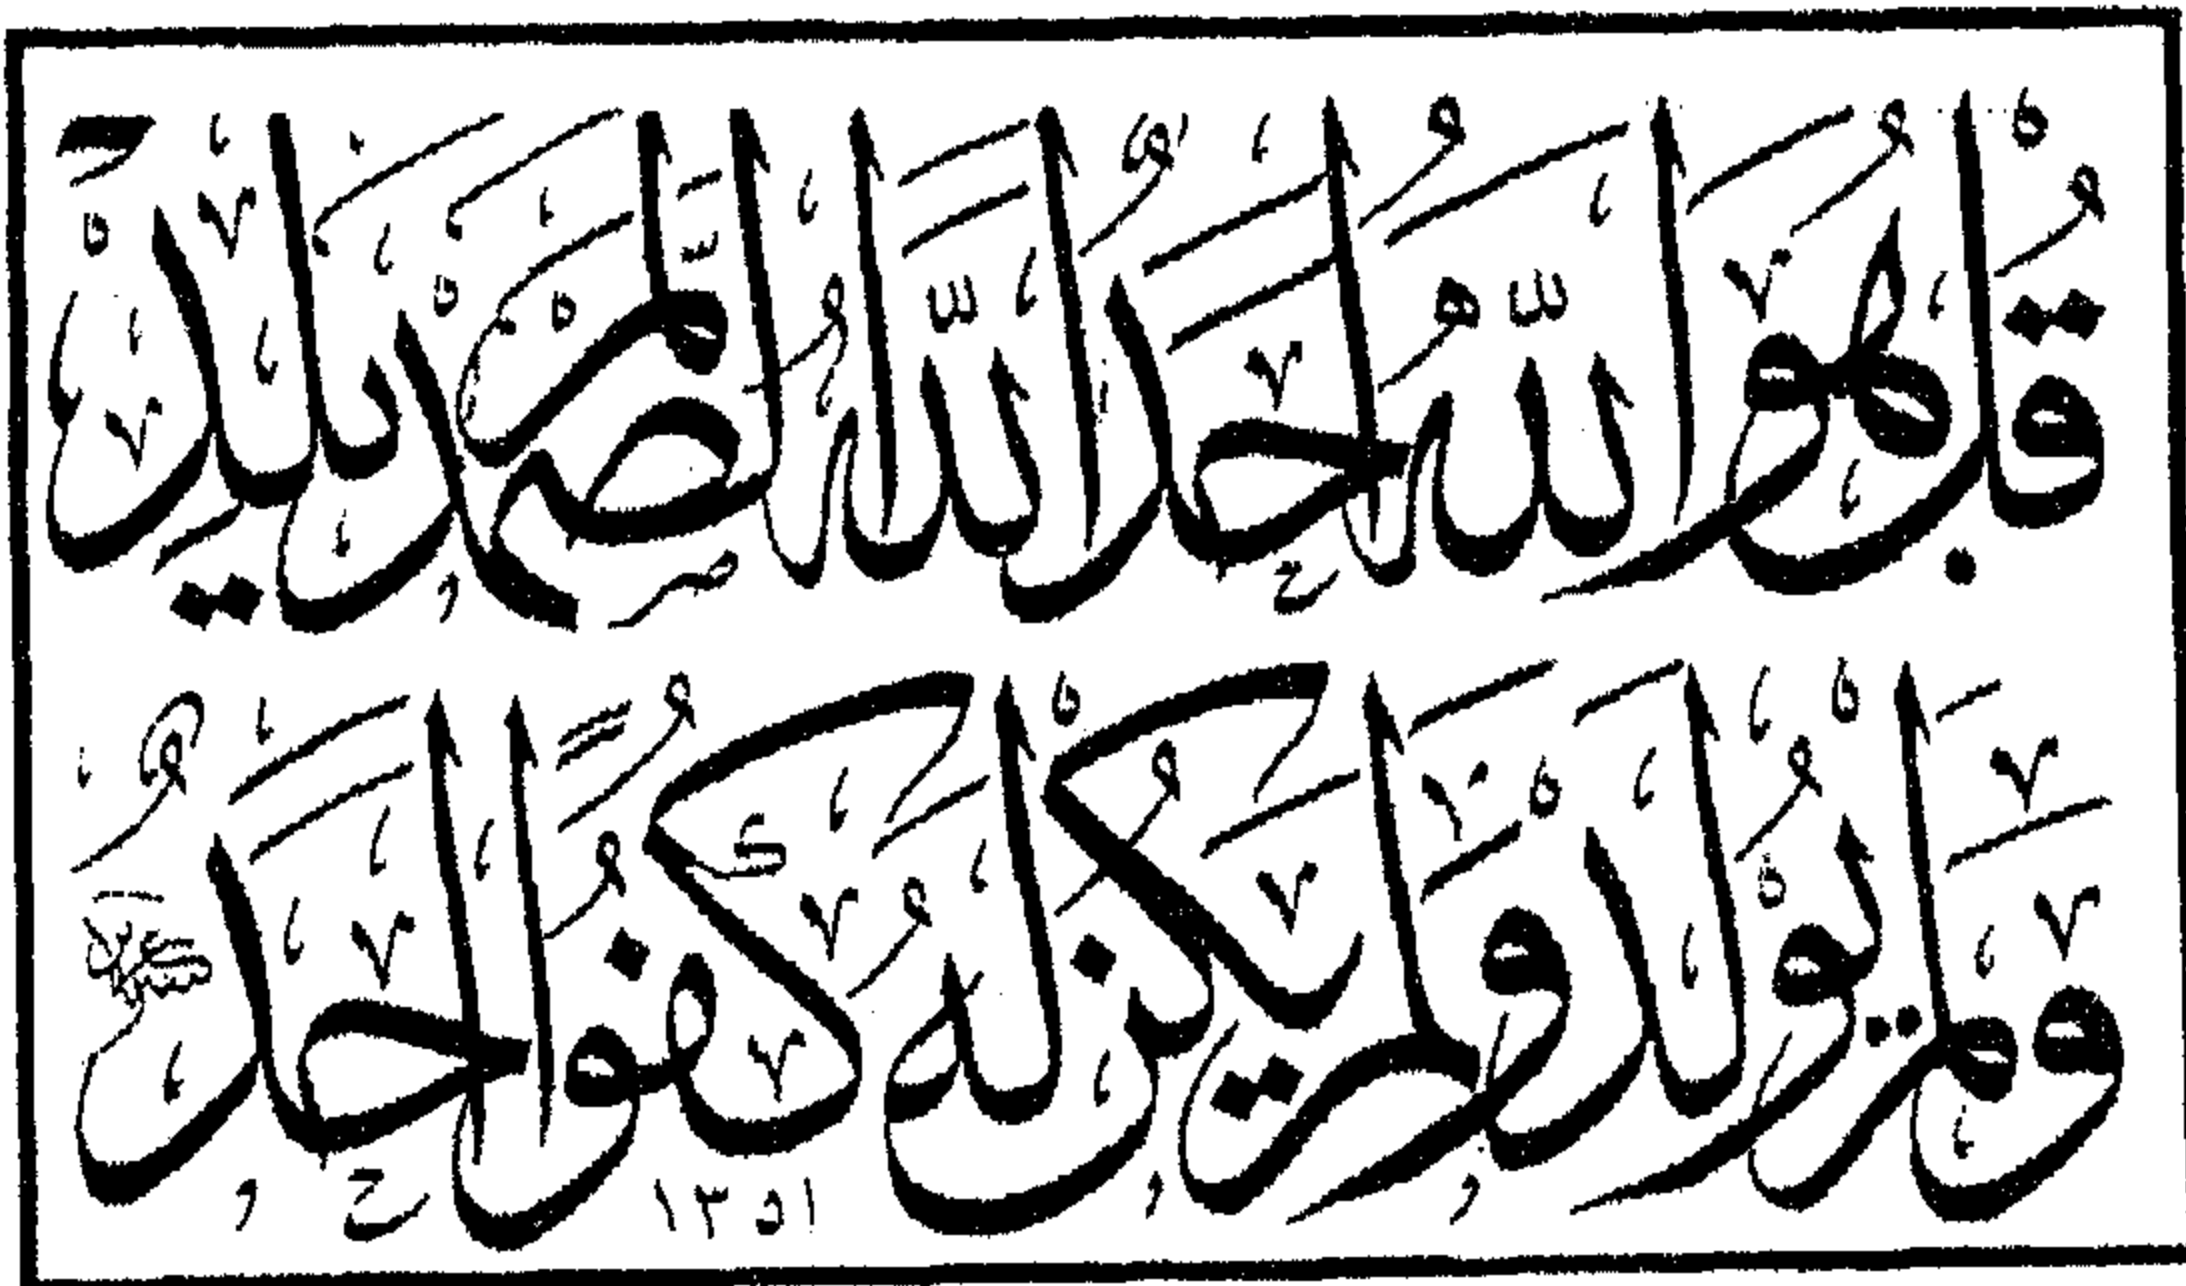 قُلْ هُوَ اللّٰهُ اَحَدٌ اَللّٰهُ الصَّمَدُ لَمْ يَلِدْ
وَلَمْ يُولَدْ وَلَمْ يَكُنْ لَهُ كُفُوًا اَحَدٌ
١٣٥١